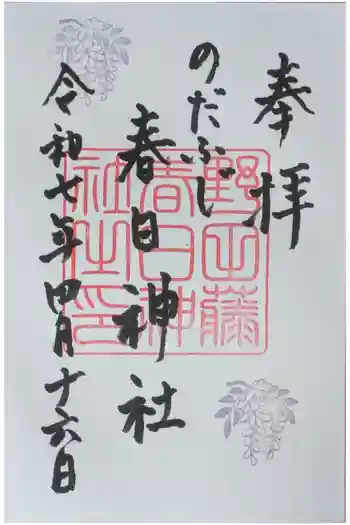 奉拝
のだふじ
春日神社
令和七年四月十六日
野田藤
春日神
社之印